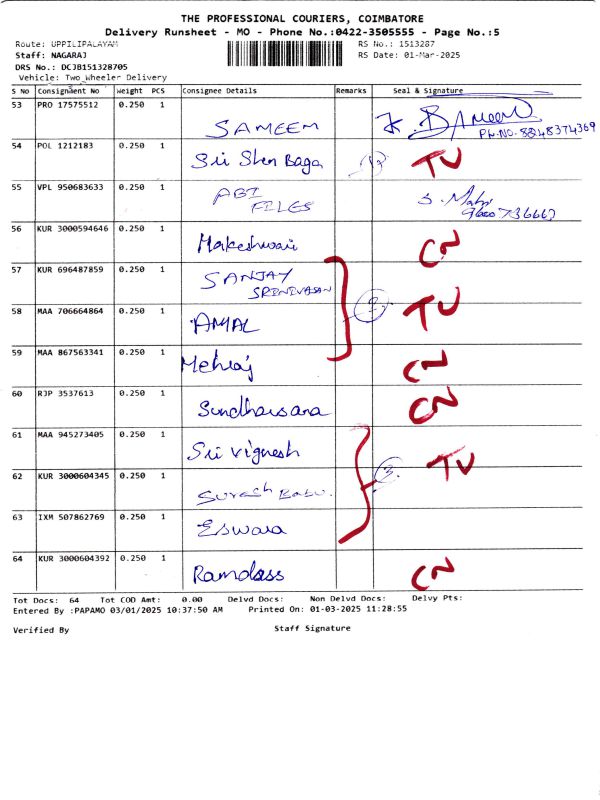 THE PROFESSIONAL COURIERS, COIMBATORE
Delivery Runsheet - MO - Phone No.:0422-3505555 - Page No.:5
Route: UPPILIPALAYAM RS No.: 1513287
Staff: NAGARAJ RS Date: 01-Mar-2025
DRS No.: DCJB151328705
Vehicle: Two Wheeler Delivery
S No Consignment No Weight PCS Consignee Details Remarks Seal & Signature
53 PRO 17575512 0.250 1 SAMEEM
PH.NO. 8248374369
54 POL 1212183 0.250 1 Sri Shen Baga TV
55 VPL 950683633 0.250 1 ABI
FILES
56 KUR 3000594646 0.250 1 Makeshwari CN
57 KUR 696487859 0.250 1 SANJAY
SRINIVASAN
58 MAA 706664864 0.250 1 AMAL 2 TV
59 MAA 867563341 0.250 1 Mehraj CN
60 RJP 3537613 0.250 1 Sundharsana CN
61 MAA 945273405 0.250 1 Sri Vignesh TV
62 KUR 3000604345 0.250 1 Suresh Babu. 3
63 IXM 507862769 0.250 1 Eswara
64 KUR 3000604392 0.250 1 Ramdass CN
Tot Docs: 64 Tot COD Amt: 0.00 Delvd Docs: Non Delvd Docs: Delvy Pts:
Entered By :PAPAMO 03/01/2025 10:37:50 AM Printed On: 01-03-2025 11:28:55
Verified By Staff Signature